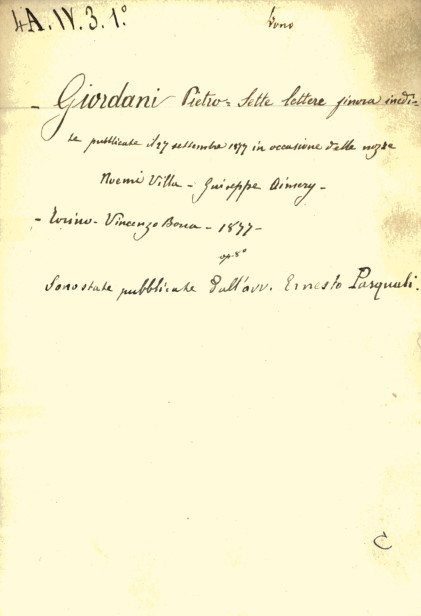 4A.IV.3.1º
Dono
- Giordani Pietro = Sette lettere finora inedi-
te pubblicate il 27 settembre 1877 in occasione delle nozze
Noemi Villa - Giuseppe Aimery -
- Torino - Vincenzo Bona - 1877 -
op. 8º
Sono state pubblicate dall'avv. Ernesto Pasquali.
C